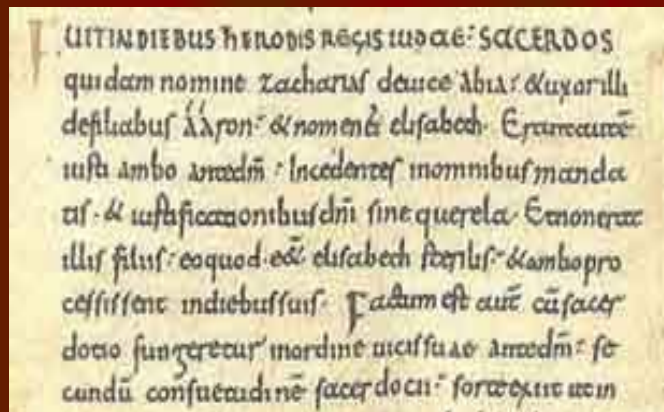 FUIT IN DIEBUS hERODIS REGIS IUDAE: SACERDOS
quidam nomine zacharias deuice abia: & uxor illi
defiliabus aaron: & nomen ei elisabeth. Erant aut̄
iusti ambo ante dm̄: Incedentes inomnibus manda
tis. & iustificationibus dn̄i sine querela. Et non erat
illis filius: eoquod eēt elisabeth sterilis: & ambo pro
cessissent indiebus suis. Factum est aut̄ cū sacer
dotio fungeretur inordine uicis suae ante dm̄: se
cundū consuetudinē sacerdotii: sorte exiit ut in